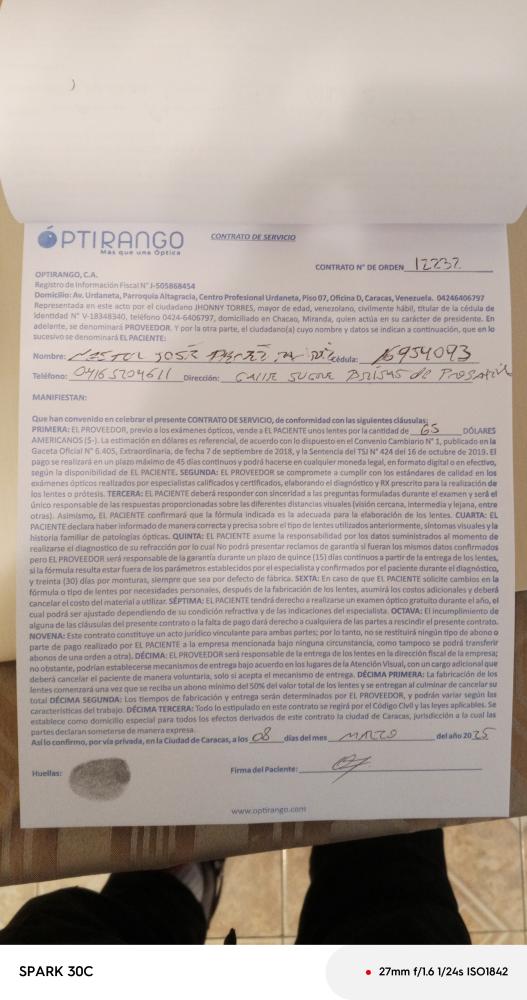 OPTIRANGO
Más que una Óptica
CONTRATO DE SERVICIO
CONTRATO N° DE ORDEN 12232
OPTIRANGO, C.A.
Registro de Información Fiscal N° J-505868454
Domicilio: Av. Urdaneta, Parroquia Altagracia, Centro Profesional Urdaneta, Piso 07, Oficina D, Caracas, Venezuela. 04246406797
Representada en este acto por el ciudadano JHONNY TORRES, mayor de edad, venezolano, civilmente hábil, titular de la cédula de
Identidad N° V-18348340, teléfono 0424-6406797, domiciliado en Chacao, Miranda, quien actúa en su carácter de presidente. En
adelante, se denominará PROVEEDOR. Y por la otra parte, el ciudadano(a) cuyo nombre y datos se indican a continuación, que en lo
sucesivo se denominará EL PACIENTE:
Nombre: Nestor José Cédula: 16954093
Teléfono: 04165204611 Dirección: Calle Sucre Brisas de
MANIFIESTAN:
Que han convenido en celebrar el presente CONTRATO DE SERVICIO, de conformidad con las siguientes cláusulas:
PRIMERA: EL PROVEEDOR, previo a los exámenes ópticos, vende a EL PACIENTE unos lentes por la cantidad de 65 DÓLARES
AMERICANOS ($-). La estimación en dólares es referencial, de acuerdo con lo dispuesto en el Convenio Cambiario N° 1, publicado en la
Gaceta Oficial N° 6.405, Extraordinaria, de fecha 7 de septiembre de 2018, y la Sentencia del TSJ N° 424 del 16 de octubre de 2019. El
pago se realizará en un plazo máximo de 45 días continuos y podrá hacerse en cualquier moneda legal, en formato digital o en efectivo,
según la disponibilidad de EL PACIENTE. SEGUNDA: EL PROVEEDOR se compromete a cumplir con los estándares de calidad en los
exámenes ópticos realizados por especialistas calificados y certificados, elaborando el diagnóstico y RX prescrito para la realización de
los lentes o prótesis. TERCERA: EL PACIENTE deberá responder con sinceridad a las preguntas formuladas durante el examen y será el
único responsable de las respuestas proporcionadas sobre las diferentes distancias visuales (visión cercana, intermedia y lejana, entre
otras). Asimismo, EL PACIENTE confirmará que la fórmula indicada es la adecuada para la elaboración de los lentes. CUARTA: EL
PACIENTE declara haber informado de manera correcta y precisa sobre el tipo de lentes utilizados anteriormente, síntomas visuales y la
historia familiar de patologías ópticas. QUINTA: EL PACIENTE asume la responsabilidad por los datos suministrados al momento de
realizarse el diagnostico de su refracción por lo cual No podrá presentar reclamos de garantía si fueran los mismos datos confirmados
pero EL PROVEEDOR será responsable de la garantía durante un plazo de quince (15) días continuos a partir de la entrega de los lentes,
si la fórmula resulta estar fuera de los parámetros establecidos por el especialista y confirmados por el paciente durante el diagnóstico,
y treinta (30) días por monturas, siempre que sea por defecto de fábrica. SEXTA: En caso de que EL PACIENTE solicite cambios en la
fórmula o tipo de lentes por necesidades personales, después de la fabricación de los lentes, asumirá los costos adicionales y deberá
cancelar el costo del material a utilizar. SÉPTIMA: EL PACIENTE tendrá derecho a realizarse un examen óptico gratuito durante el año, el
cual podrá ser ajustado dependiendo de su condición refractiva y de las indicaciones del especialista. OCTAVA: El incumplimiento de
alguna de las cláusulas del presente contrato o la falta de pago dará derecho a cualquiera de las partes a rescindir el presente contrato.
NOVENA: Este contrato constituye un acto jurídico vinculante para ambas partes; por lo tanto, no se restituirá ningún tipo de abono o
parte de pago realizado por EL PACIENTE a la empresa mencionada bajo ninguna circunstancia, como tampoco se podrá transferir
abonos de una orden a otra). DÉCIMA: EL PROVEEDOR será responsable de la entrega de los lentes en la dirección fiscal de la empresa;
no obstante, podrían establecerse mecanismos de entrega bajo acuerdo en los lugares de la Atención Visual, con un cargo adicional que
deberá cancelar el paciente de manera voluntaria, solo si acepta el mecanismo de entrega. DÉCIMA PRIMERA: La fabricación de los
lentes comenzará una vez que se reciba un abono mínimo del 50% del valor total de los lentes y se entregan al culminar de cancelar su
total DÉCIMA SEGUNDA: Los tiempos de fabricación y entrega serán determinados por EL PROVEEDOR, y podrán variar según las
características del trabajo. DÉCIMA TERCERA: Todo lo estipulado en este contrato se regirá por el Código Civil y las leyes aplicables. Se
establece como domicilio especial para todos los efectos derivados de este contrato la ciudad de Caracas, jurisdicción a la cual las
partes declaran someterse de manera expresa.
Así lo confirmo, por vía privada, en la Ciudad de Caracas, a los 08 días del mes Marzo del año 2025
Huellas: Firma del Paciente:
www.optirango.com
SPARK 30C
27mm f/1.6 1/24s ISO1842